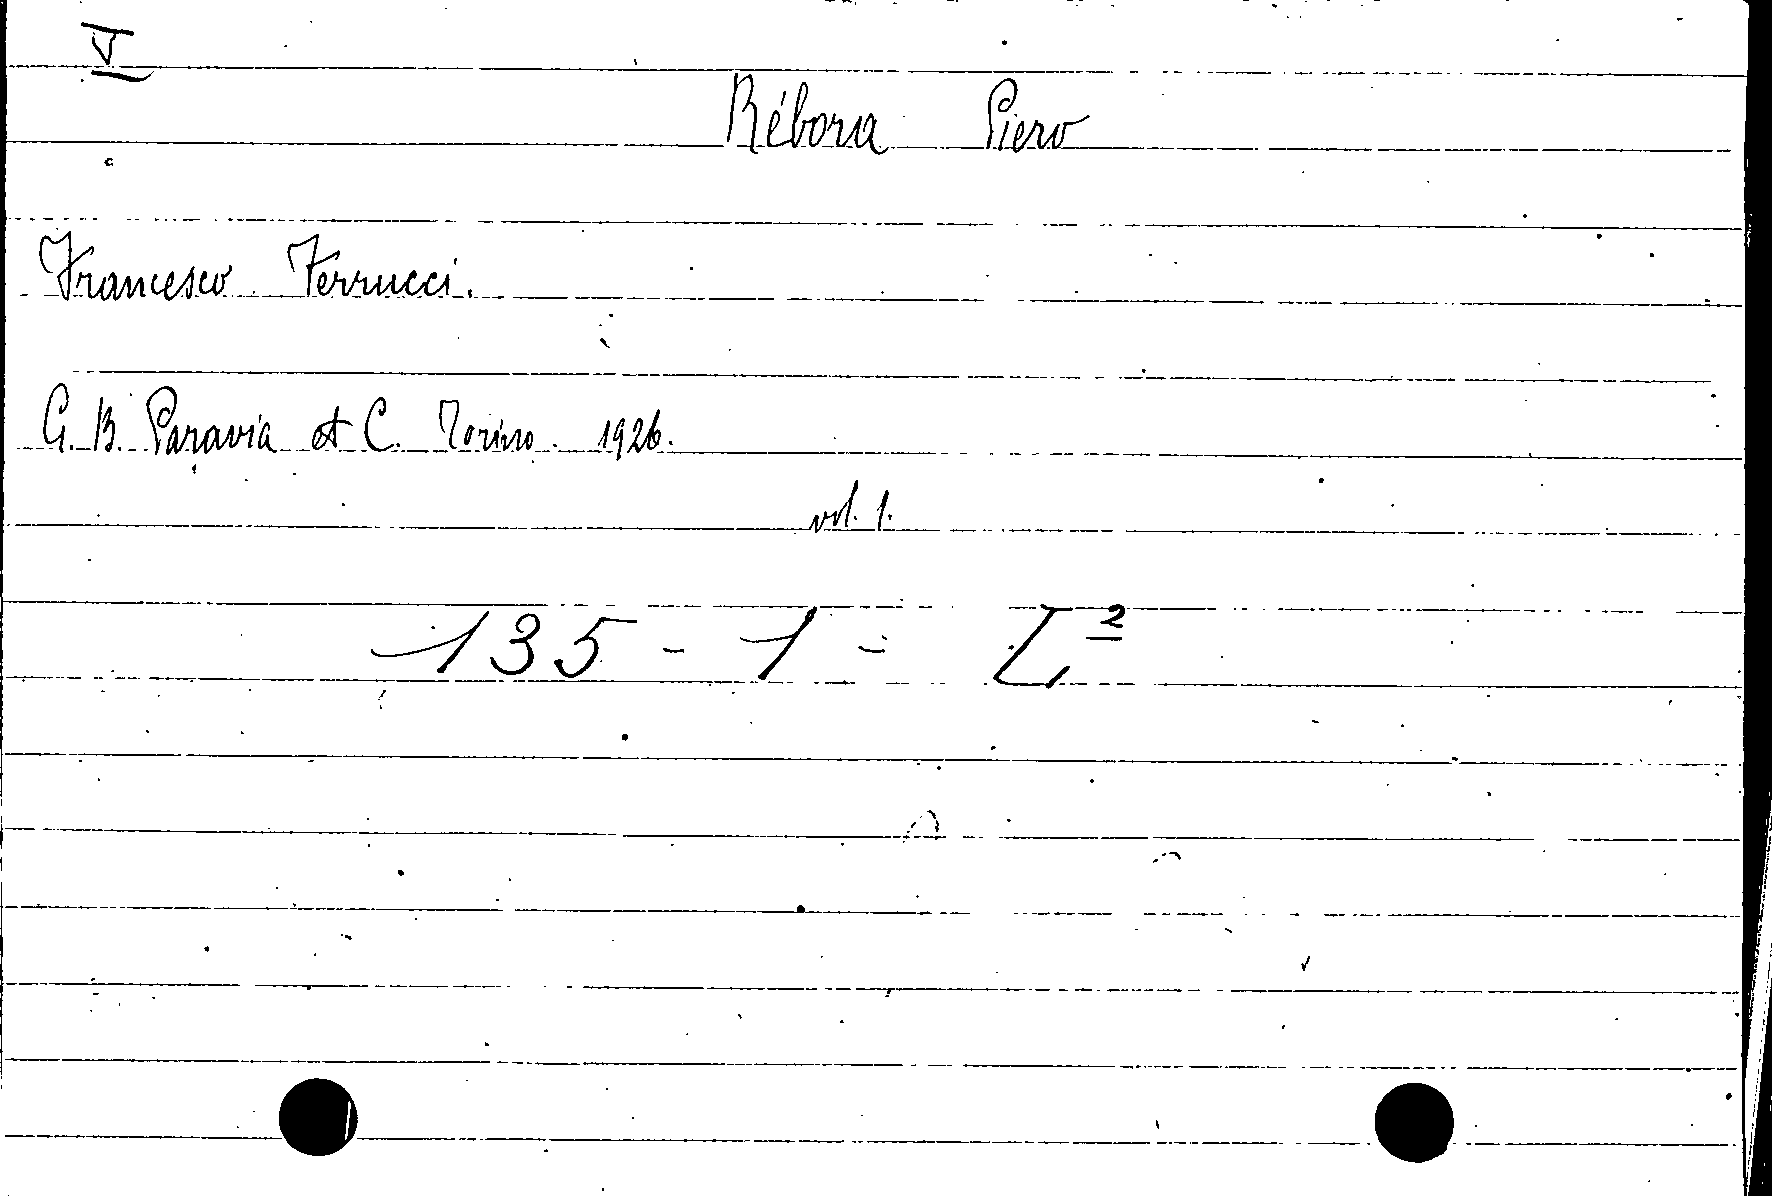 V
Rébora Piero
Francesco Ferrucci.
G. B. Paravia et C. Torino. 1926.
vol. 1.
135 - 1 - L²